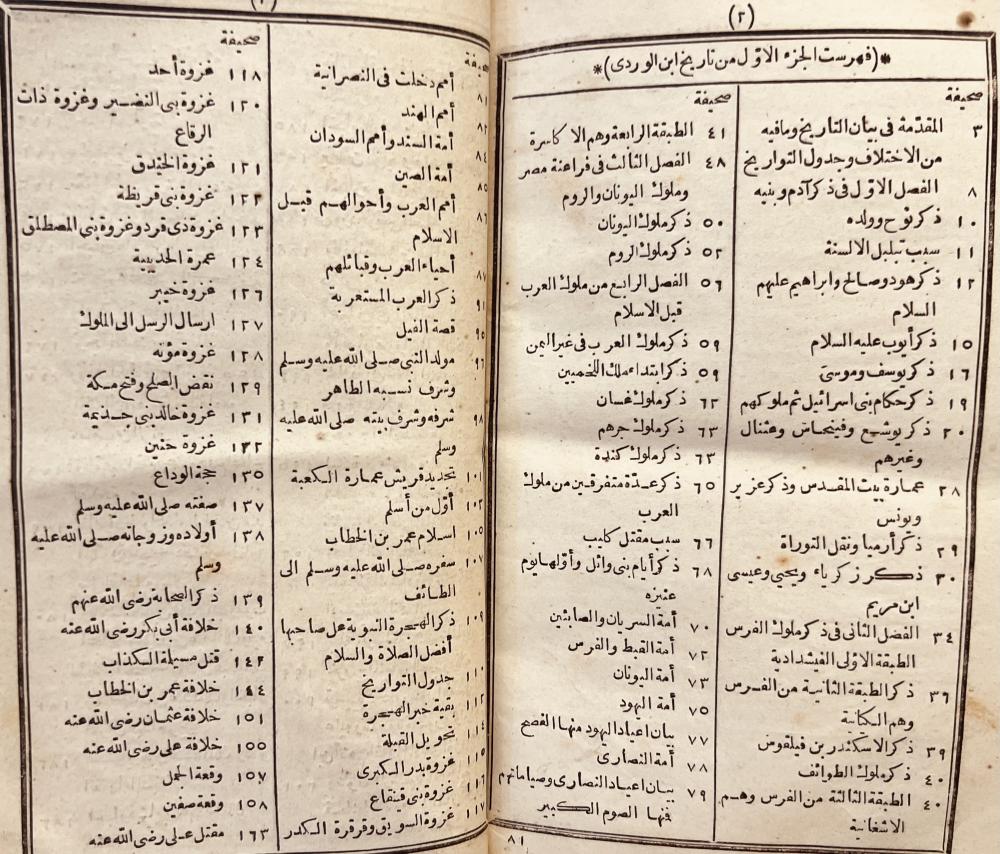 (٢)
*(فهرست الجزء الاوّل من تاريخ ابن الوردى)*
صحيفة
٣ المقدّمة فى بيان التاريخ وما فيه
من الاختلاف وجدول التواريخ
٨ الفصل الاوّل فى ذكر آدم وبنيه
١٠ ذكر نوح وولده
١١ سبب تبلبل الالسنة
١٢ ذكر هود وصالح وابراهيم عليهم
السلام
١٥ ذكر أيوب عليه السلام
١٦ ذكر يوسف وموسى
١٩ ذكر حكام بنى اسرائيل ثم ملوكهم
٢٠ ذكر يوشع وفينحاس وعثنال
وغيرهم
٢٨ عمارة بيت المقدس وذكر عزير
ويونس
٢٩ ذكر أرميا ونقل التوراة
٣٠ ذكر زكرياء ويحيى وعيسى
ابن مريم
٣٤ الفصل الثانى فى ذكر ملوك الفرس
الطبقة الاولى الفيشدادية
٣٦ ذكر الطبقة الثانية من الفرس
وهم الكيانية
٣٩ ذكر الاسكندر بن فيلقوس
٤٠ ذكر ملوك الطوائف
٤٠ الطبقة الثالثة من الفرس وهم
الاشغانية
صحيفة
٤١ الطبقة الرابعة وهم الاكاسرة
٤٨ الفصل الثالث فى فراعنة مصر
وملوك اليونان والروم
٥٠ ذكر ملوك اليونان
٥٢ ذكر ملوك الروم
٥٦ الفصل الرابع من ملوك العرب
قبل الاسلام
٥٩ ذكر ملوك العرب فى غير اليمن
٥٩ ذكر ابتداء ملك اللخميين
٦٢ ذكر ملوك غسان
٦٣ ذكر ملوك جرهم
٦٣ ذكر ملوك كندة
٦٥ ذكر عدّة متفرقين من ملوك
العرب
٦٦ سبب مقتل كليب
٦٨ ذكر أيام بنى وائل وأوّلها يوم
عنيزه
٧٠ أمة السريان والصابئين
٧٢ أمة القبط والفرس
٧٣ أمة اليونان
٧٥ أمة اليهود
٧٧ بيان اعياد اليهود منها الفصح
٧٨ أمة النصارى
٧٩ بيان اعياد النصارى وصياماتهم
فيها الصوم الكبير
٨١
صحيفة
٨١ أمم دخلت فى النصرانية
٨٢ أمم الهند
٨٤ أمة السند وأمم السودان
٨٥ أمة الصين
٨٦ أمم العرب وأحوالهم قبل
الاسلام
٨٧ أحياء العرب وقبائلهم
٩١ ذكر العرب المستعربة
٩٥ قصة الفيل
٩٦ مولد النبى صلى الله عليه وسلم
وشرف نسبه الطاهر
٩٨ شرفه وشرف بيته صلى الله عليه
وسلم
١٠١ تجديد قريش عمارة الكعبة
١٠٢ أوّل من أسلم
١٠٥ اسلام عمر بن الخطاب
١٠٧ سفره صلى الله عليه وسلم الى
الطائف
١٠٩ ذكر الهجرة النبوية على صاحبها
أفضل الصلاة والسلام
١١٠ جدول التواريخ
١١٢ بقية خبر الهجرة
١١٤ تحويل القبلة
١١٥ غزوة بدر الكبرى
١١٦ غزوة بنى قنقاع
١١٧ غزوة السويق وقرقرة الكدر
صحيفة
١١٨ غزوة أحد
١٢٠ غزوة بنى النضير وغزوة ذات
الرقاع
١٢١ غزوة الخندق
١٢٢ غزوة بنى قريظة
١٢٣ غزوة ذى قرد وغزوة بنى المصطلق
١٢٤ عمرة الحديبية
١٢٦ غزوة خيبر
١٢٧ ارسال الرسل الى الملوك
١٢٨ غزوة مؤته
١٢٩ نقض الصلح وفتح مكة
١٣١ غزوة خالد بنى جذيمة
١٣٢ غزوة حنين
١٣٥ حجة الوداع
١٣٧ صفته صلى الله عليه وسلم
١٣٨ أولاده وزوجاته صلى الله عليه
وسلم
١٣٩ ذكر الصحابة رضى الله عنهم
١٤٠ خلافة أبى بكر رضى الله عنه
١٤٢ قتل مسيلة الكذاب
١٤٤ خلافة عمر بن الخطاب
١٥١ خلافة عثمان رضى الله عنه
١٥٥ خلافة على رضى الله عنه
١٥٧ وقعة الجمل
١٥٨ وقعة صفين
١٦٣ مقتل على رضى الله عنه